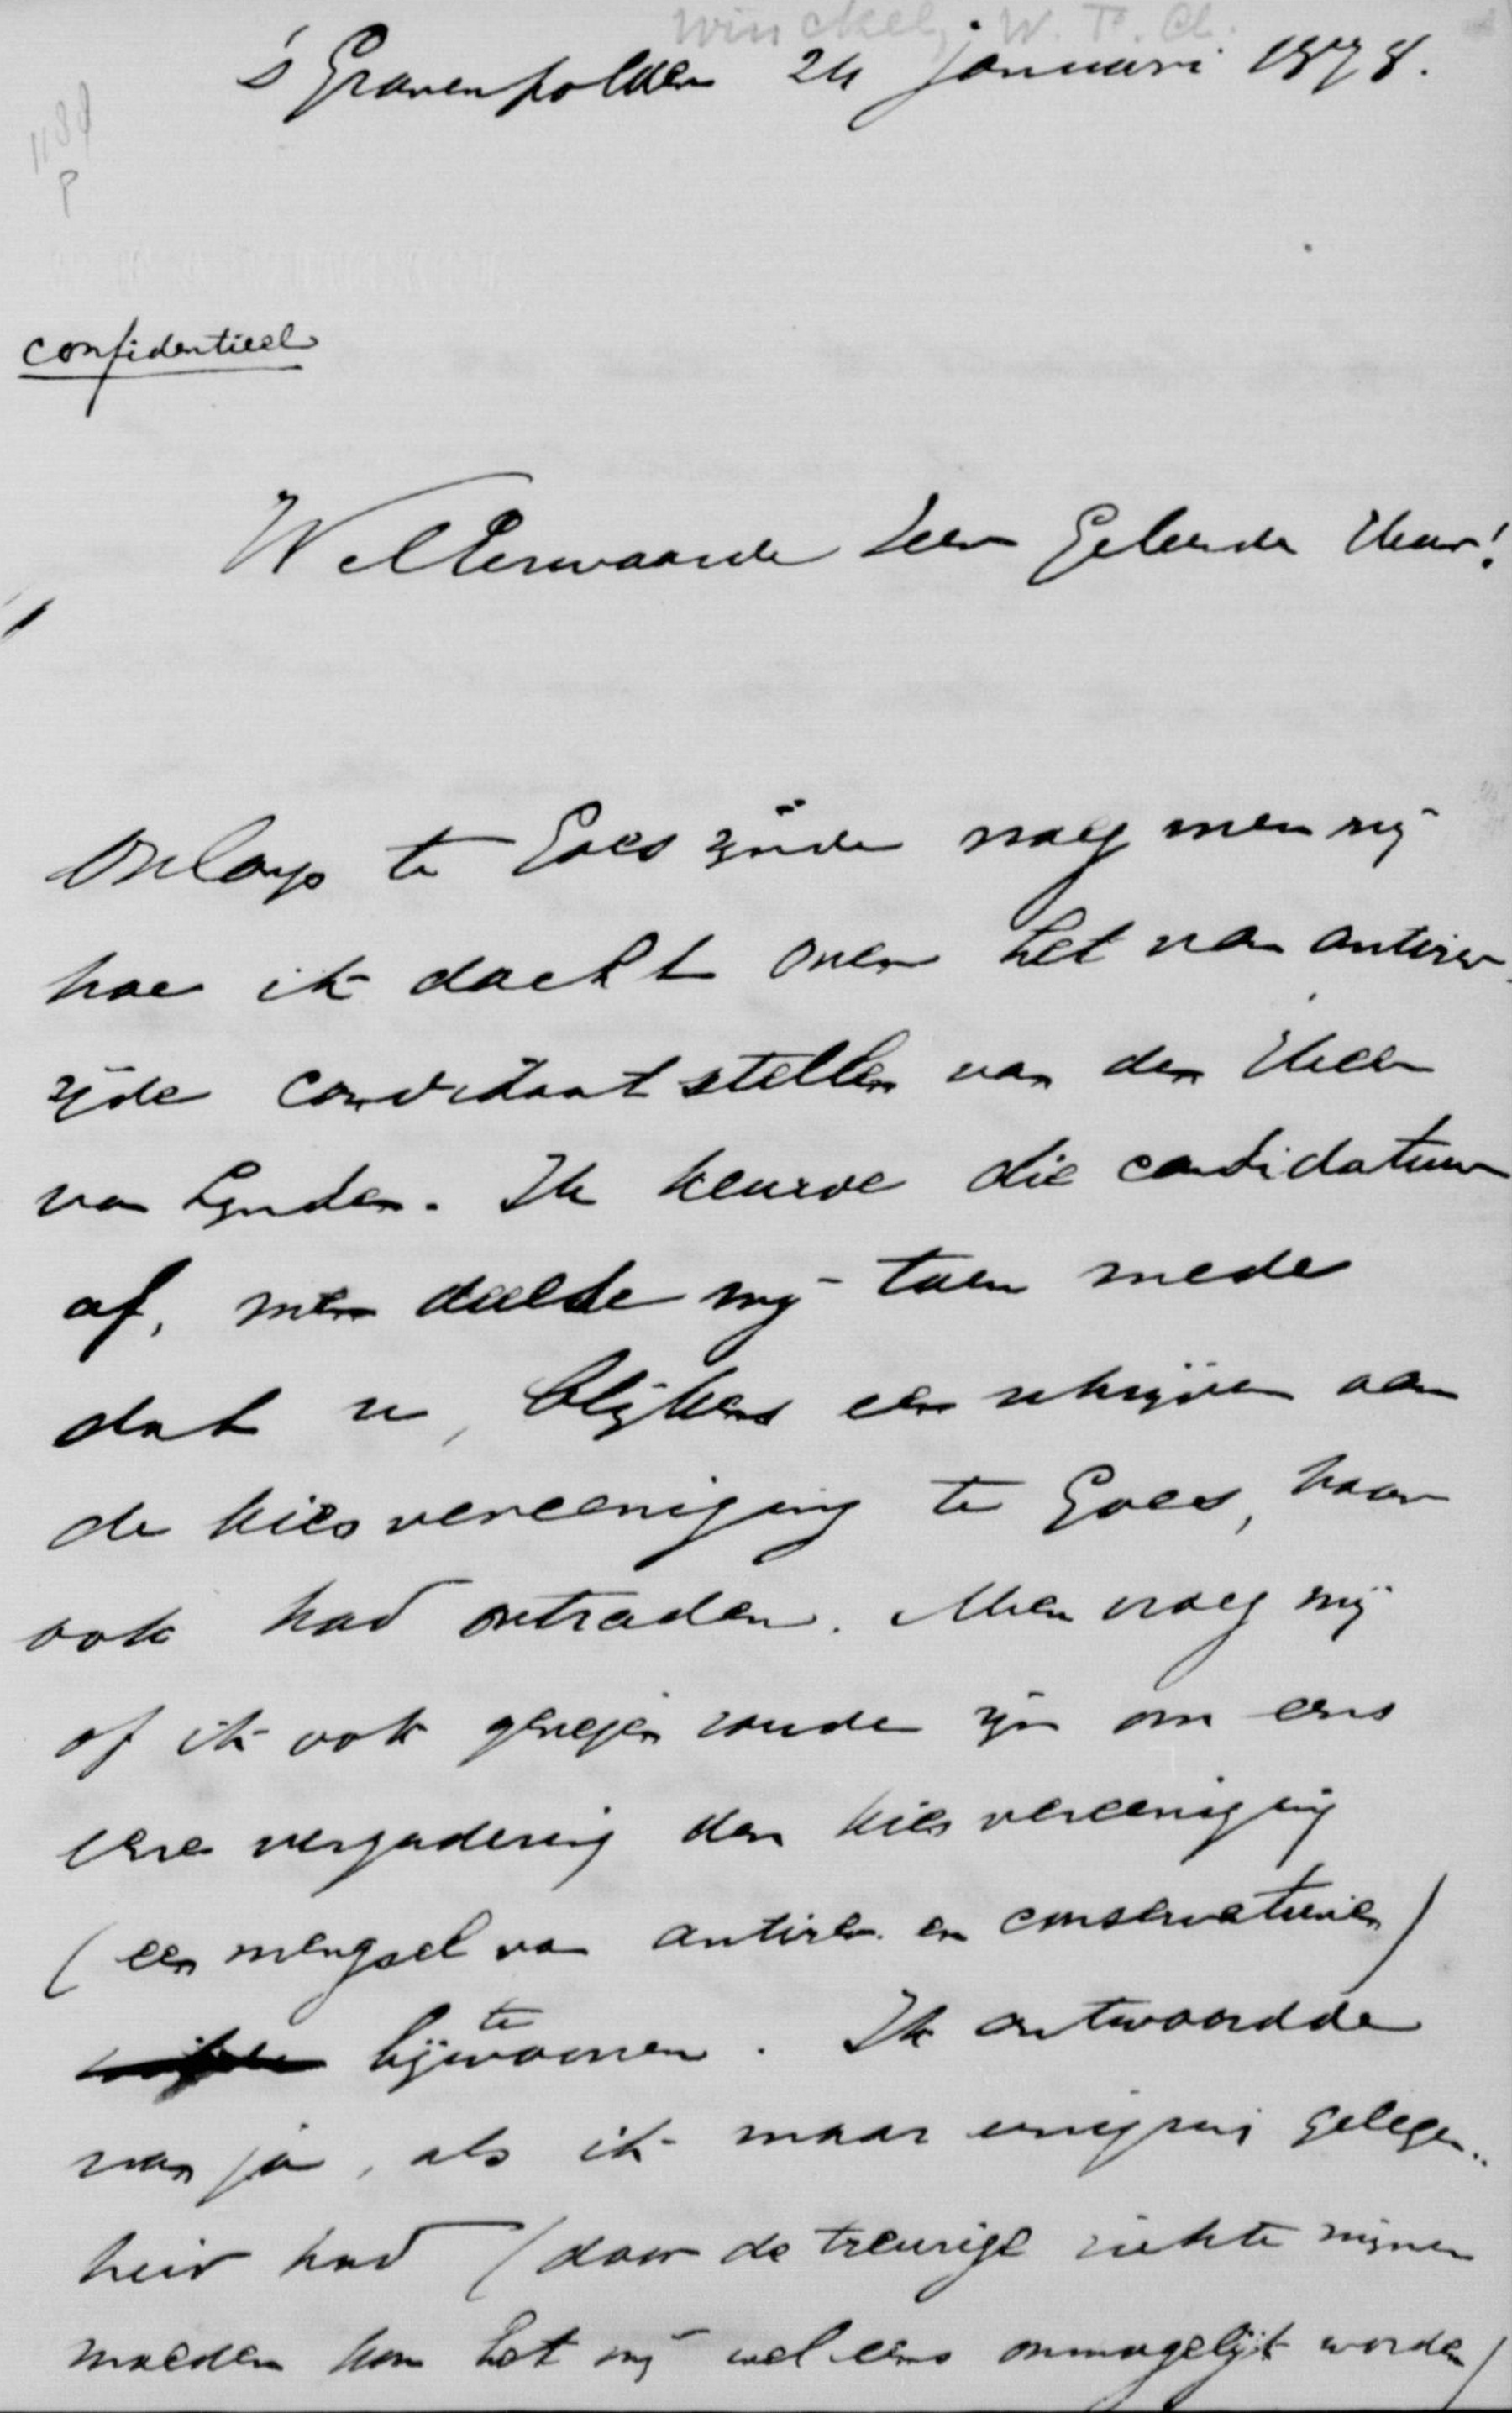 Winckel, W. F. A.
's Gravenpolder 24 Januari 1878.
1189
P
confidentieel
WelEerwaarde Zeer Geleerde Heer!
Onlangs te Goes zijnde vroeg men mij
hoe ik dacht over het van antirev.
zijde candidaat stellen van den Heer
van Lynden. Ik keurde die candidatuur
af, men deelde mij toen mede
dat u, blijkens een schrijven aan
de kiesvereeniging te Goes, haar
ook had ontraden. Men vroeg mij
of ik ook genegen zoude zijn om eens
eene vergadering der kiesvereeniging
(een mengsel van antirev. en conservatieven)
bij te woonen. Ik antwoordde
van ja, als ik maar eenigzins gelegen-
heid had (door de treurige ziekte mijner
moeder kon het mij wel eens onmogelijk worden)